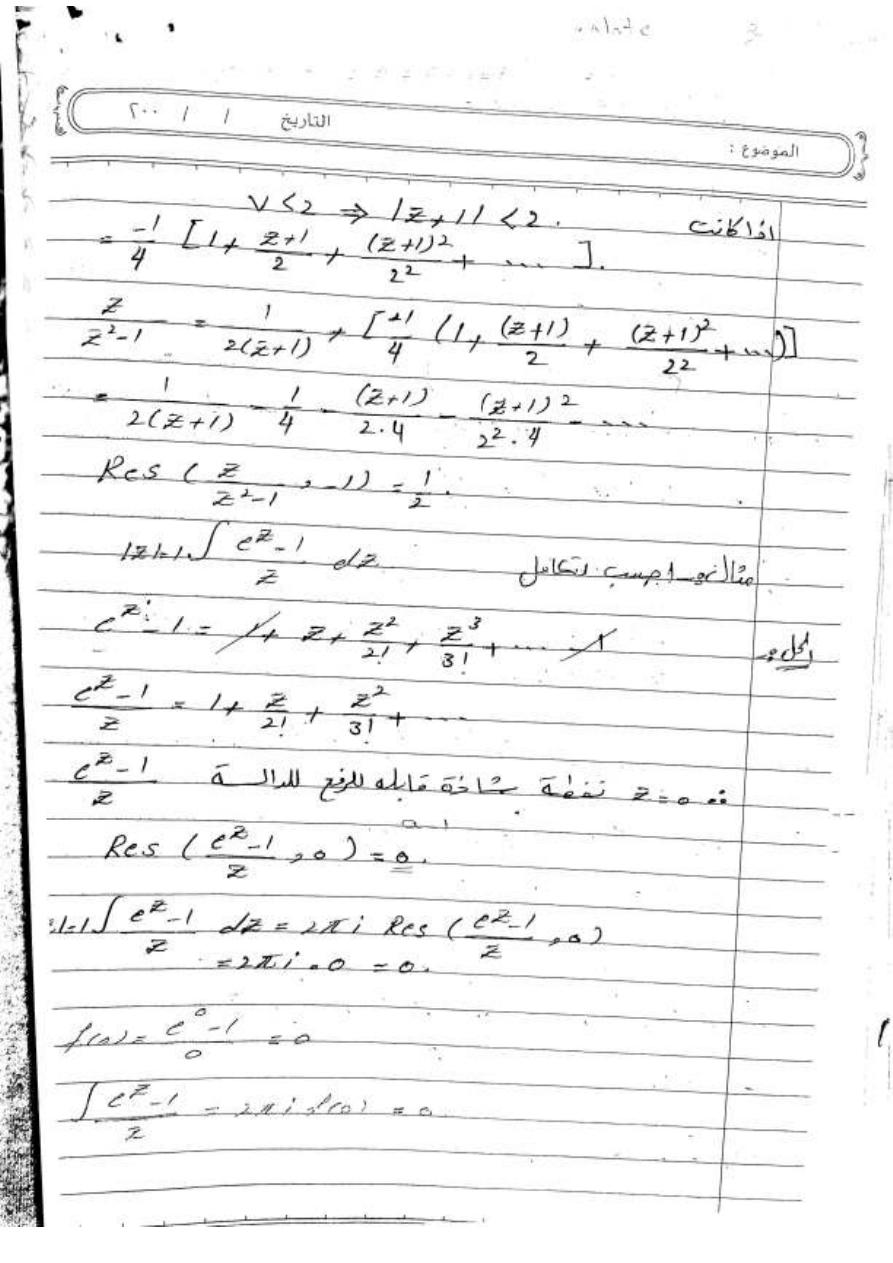 التاريخ / / ٢٠٠
الموضوع :
اذا كانت V < 2 ⇒ |z+1| < 2.
= -1/4 [1 + (z+1)/2 + (z+1)²/2² + ....].
z/(z²-1) = 1/(2(z+1)) + [-1/4 (1 + (z+1)/2 + (z+1)²/22 + ...)]
= 1/(2(z+1)) - 1/4 - (z+1)/(2.4) - (z+1)²/(2².4) - ....
Res (z/(z²-1), -1) = 1/2.
احسب التكامل |z|=1 ∫ (e^z - 1)/z dz
الحل :- e^z - 1 = 1 + z + z²/2! + z³/3! + ... - 1
(e^z - 1)/z = 1 + z/2! + z²/3! + ....
∴ z = 0 نقطة شاذة قابله للرفع للدالة (e^z - 1)/z
Res ((e^z - 1)/z, 0) = 0.
|z|=1 ∫ (e^z - 1)/z dz = 2πi Res ((e^z - 1)/z, 0)
= 2πi . 0 = 0.
f(0) = (e^0 - 1)/0 = 0
∫ (e^z - 1)/z = 2πi f(0) = 0